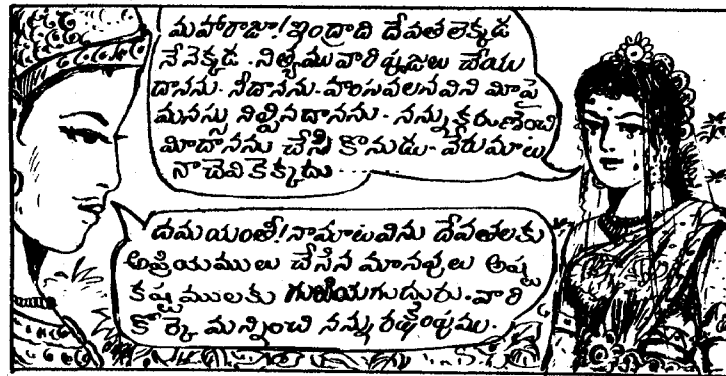 మహారాజా! ఇంద్రాది దేవతలెక్కడ
నేనెక్కడ. నిత్యము వారి పూజలు చేయు
దానను. నీదానను. హంసవలన విని మీపై
మనస్సు నిల్పినదానను. నన్ను కరుణించి
మీదానను చేసి కొనుడు. వేరుమాట
నాచెవి కెక్కదు......
దమయంతీ! నామాటవిను దేవతలకు
అప్రియములు చేసిన మానవులు అష్ట
కష్టములకు గురియగుదురు. వారి
కోర్కె మన్నించి నన్ను రక్షింపుము.